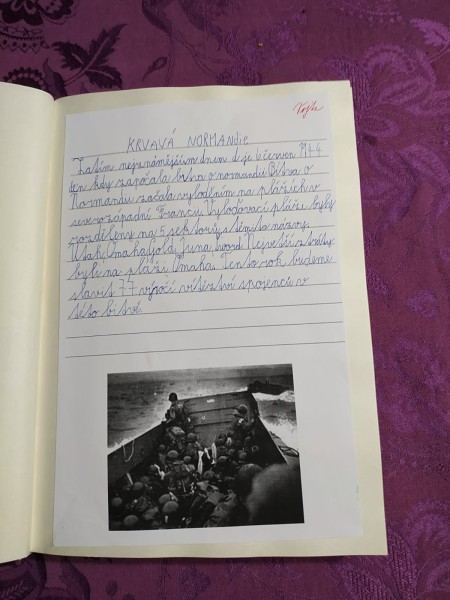 KRVAVÁ NORMANDIE
Zatím nejznámějším dnem d je 6 červen 1944
den kdy započala bitva o normandii Bitva o
Normandii začala vyloděním na plážích v
severozápadní Francii Vyloďovací pláže byly
rozděleny na 5 sektorů s těmito názvy
Utah, Omaha, Gold, Juno, Sword Největší ztráty
byli na pláži Omaha. Tento rok budeme
slavit 77 výročí vítězství spojenců v
této bitvě